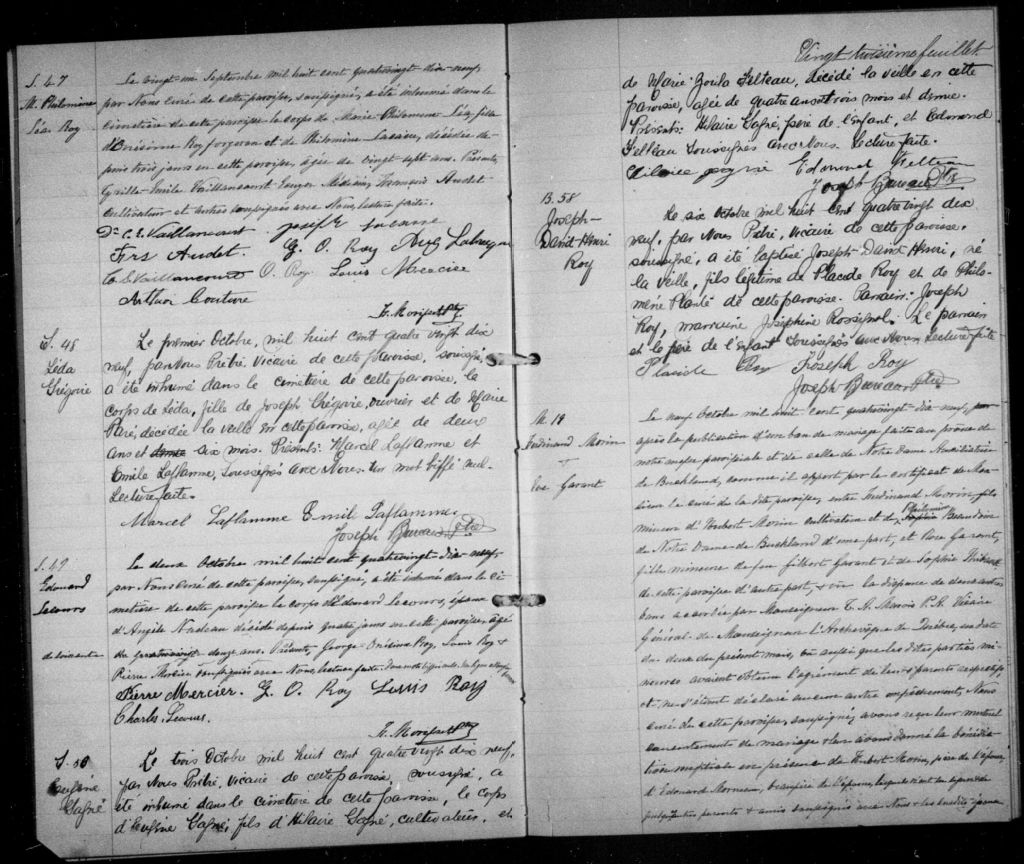 S. 47
M. Philomène
Léa Roy
Le vingt-un Septembre mil huit cent quatrevingt dix-neuf,
par Nous Curé de cette paroisse, soussigné, a été inhumé dans le
cimetière de cette paroisse le corps de Marie Philomène Léa, fille
d'Onésime Roy forgeron et de Philomène Lacasse, décédée de-
puis trois jours en cette paroisse, âgée de vingt sept ans. Présents,
Cyrille Emile Vaillancourt Ecuyer Médecin, François Audet
cultivateur et autres soussignés avec Nous, lecture faite.
Dr C. E. Vaillancourt joseph lacasse
Frs Audet. G. O. Roy
Vaillancourt O. Roy Louis Mercier
Arthur Couture
S. 48
Léda
Grégoire
Le premier Octobre, mil huit cent quatre vingt dix
neuf, par Nous Prêtre, Vicaire de cette paroisse, soussigné,
a été inhumé dans le cimetière de cette paroisse, le
corps de Léda, fille de Joseph Grégoire, ouvrier et de Marie
Paré, décédée la veille en cette paroisse, agée de deux
ans et six mois. Présents: Marcel Laflamme et
Emile Laflamme, soussignés avec Nous. Un mot biffé nul.
Lecture faite.
Marcel Laflamme Emile Laflamme
Joseph Bureau Ptre
S. 49
Edouard
Lecours
Le deux Octobre mil huit cent quatrevingt dix-neuf,
par Nous Curé de cette paroisse, soussigné, a été inhumé dans le ci-
metière de cette paroisse le corps d'Edouard Lecours, époux
d'Angèle Nadeau décédé depuis quatre jours en cette paroisse, âgé
de douze ans. Présents, George-Onésime Roy, Louis Roy &
Pierre Mercier soussignés avec Nous, lecture faite.
Pierre Mercier. G. O. Roy Louis Roy
Charles Lecours.
S. 50
Eugène
Gagné
Le trois Octobre mil huit cent quatre vingt dix neuf,
par Nous Prêtre, Vicaire de cette paroisse, soussigné, a
été inhumé dans le cimetière de cette paroisse, le corps
d'Eugène Gagné, fils d'Hilaire Gagné, cultivateur, et
Vingt troisième feuillet
de Marie Zoila Felteau, décédé la veille en cette
paroisse, agée de quatre ans et trois mois et demie.
Présents: Hilaire Gagné, père de l'enfant, et Edmond
Felteau soussignés avec Nous. Lecture faite.
Edmond
Joseph Bureau Ptre
B. 58
Joseph-
David-Henri
Roy
Le six Octobre mil huit cent quatre vingt dix
neuf, par Nous Prêtre, Vicaire de cette paroisse
soussigné, a été baptisé Joseph-David-Henri, né
la veille, fils légitime de Placide Roy et de Philo-
mène Planté de cette paroisse. Parrain: Joseph
Roy, marraine Joséphine Rossignol. Le parrain
et le père de l'enfant soussignés avec Nous. Lecture faite
Placide Roy Joseph Roy
Joseph Bureau Ptre
M. 19
Ferdinand Morin
+
Rose Garant
Le neuf Octobre mil huit cent quatrevingt dix-neuf,
après la publication d'un ban de mariage faite au prône de
notre messe paroissiale et de celle de Notre Dame Auxiliatrice
de Buckland, comme il appert par le certificat de Mon-
sieur le curé de la dite paroisse, entre Ferdinand Morin, fils
mineur d'Hubert Morin cultivateur et de Philomène Beaudoin
de Notre Dame de Buckland d'une part, et Rose Garant,
fille mineure de feu Gilbert Garant et de Sophie
de cette paroisse d'autre part, & vu la dispense de deux autres
bans accordée par Monseigneur C. A. Marois P. A. Vicaire
Général de Monseigneur l'Archevêque de Québec, en date
du deux du présent mois, vu aussi que les dites parties mi-
neures avaient obtenu l'agrément de leurs parents respectifs,
et ne s'étant déclaré aucun autre empêchement, Nous
curé de cette paroisse, soussigné, avons reçu leur mutuel
consentement de mariage & leur avons donné la bénédic-
tion nuptiale en présence de Hubert Morin, père de l'époux,